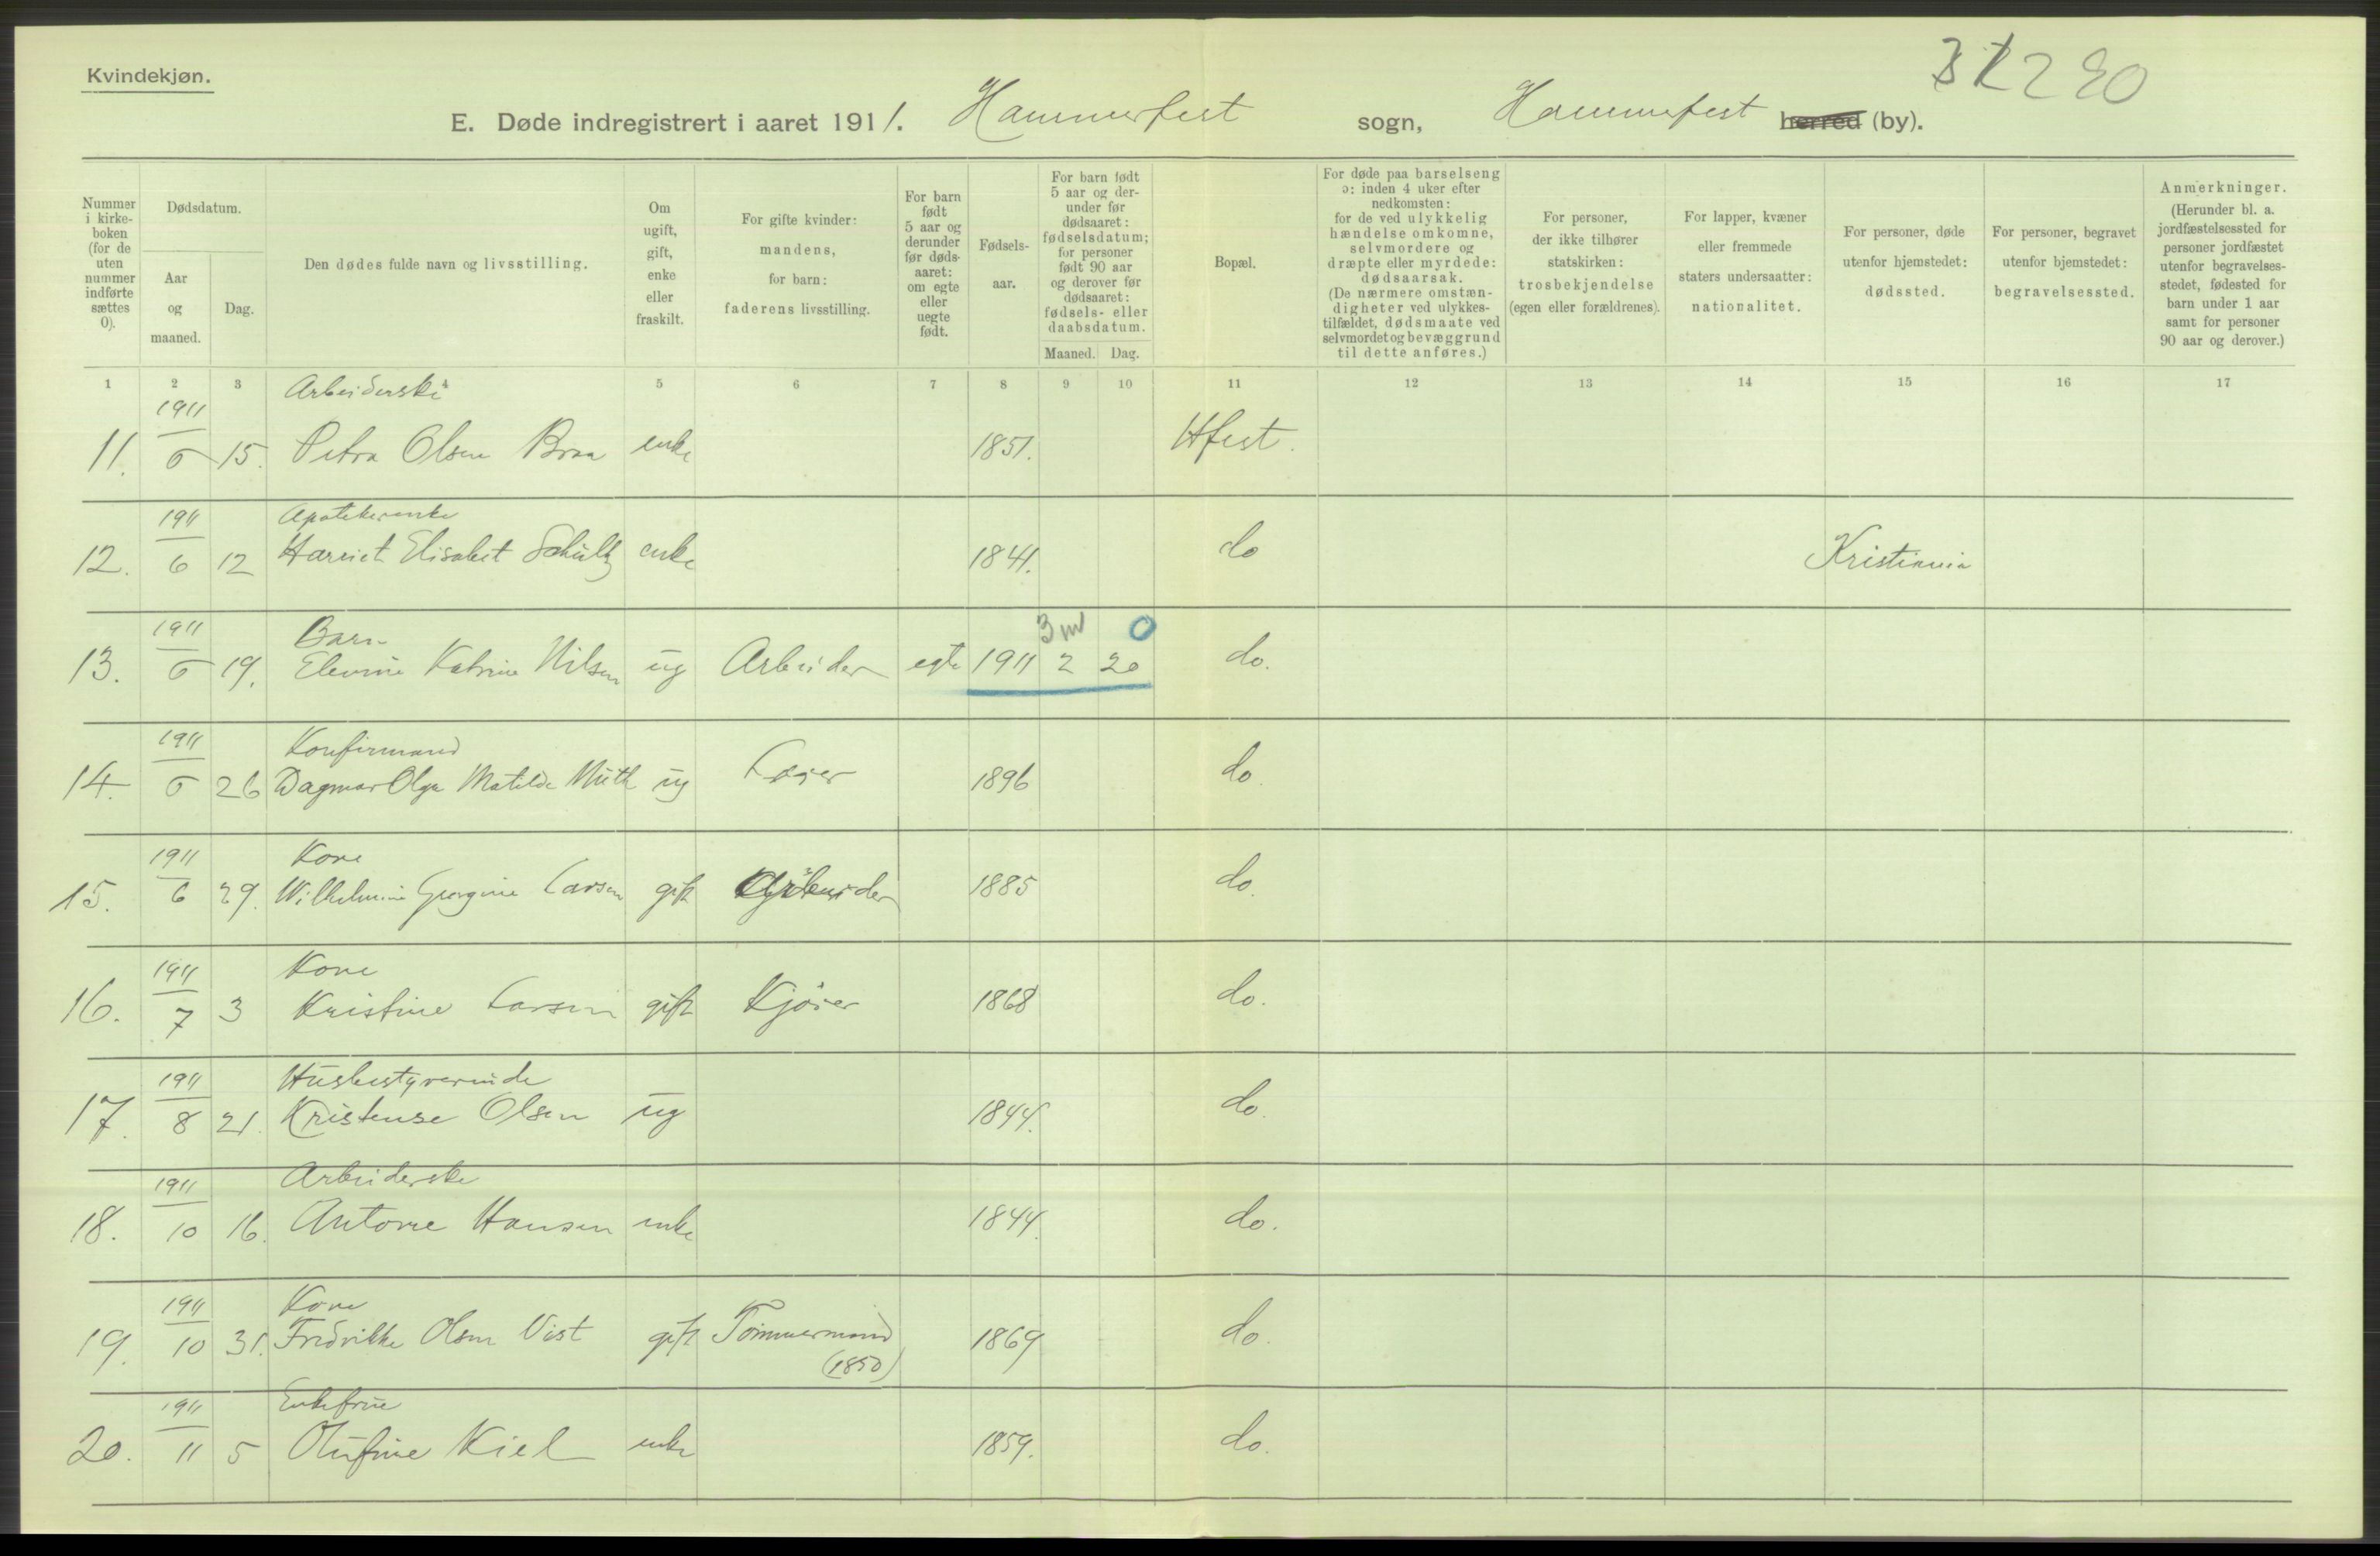 Kvindekjøn.
E. Døde indregistrert i aaret 1911. Hammerfest sogn, Hammerfest herred (by).
Nummer i kirkeboken (for de uten nummer indførte sættes 0).
Dødsdatum.
Aar og maaned.
Dag.
Den dødes fulde navn og livsstilling.
Om ugift, gift, enke eller fraskilt.
For gifte kvinder: mandens, for barn: faderens livsstilling.
For barn født 5 aar og derunder før dødsaaret: om egte eller uegte født.
Fødselsaar.
For barn født 5 aar og derunder før dødsaaret: fødselsdatum; for personer født 90 aar og derover før dødsaaret: fødsels- eller daabsdatum.
Maaned. Dag.
Bopæl.
For døde paa barselseng ɔ: inden 4 uker efter nedkomsten: for de ved ulykkelig hændelse omkomne, selvmordere og dræpte eller myrdede: dødsaarsak. (De nærmere omstændigheter ved ulykkestilfældet, dødsmaate ved selvmordet og bevæggrund til dette anføres.)
For personer, der ikke tilhører statskirken: trosbekjendelse (egen eller forældrenes).
For lapper, kvæner eller fremmede staters undersaatter: nationalitet.
For personer, døde utenfor hjemstedet: dødssted.
For personer, begravet utenfor hjemstedet: begravelsessted.
Anmerkninger. (Herunder bl. a. jordfæstelsessted for personer jordfæstet utenfor begravelsesstedet, fødested for barn under 1 aar samt for personer 90 aar og derover.)
1 2 3 5 6 7 8 9 10 11 12 13 14 15 16 17
Arbeiderske
11. 1911 6 15. Petra Olsen Braa enke 1851. Hfest.
Apotekerenke
12. 1911 6 12 Harriet Elisabet Schultz enke 1841. do Kristiania
Barn 3 m 0
13. 1911 6 19. Elevine Katrine Nilsen ug Arbeider egte 1911 2 20 do.
Konfirmand
14. 1911 6 26 Dagmar Olga Matilde Muth ug 1896 do.
Kone
15. 1911 6 29. Wilhelmine Georgine Larsen gift Arbeider 1885 do.
Kone
16. 1911 7 3 Kristine Larsen gift Kjører 1868 do.
Husbestyrerinde
17. 1911 8 21. Kristense Olsen ug 1844. do.
Arbeiderske
18. 1911 10 16. Antone Hansen enke 1844. do.
Kone
19. 1911 10 31. Fredrikke Olsen Vist gift Tømmermand (1850) 1869 do.
Enkefrue
20. 1911 11 5 Olufine Kiel enke 1859. do.